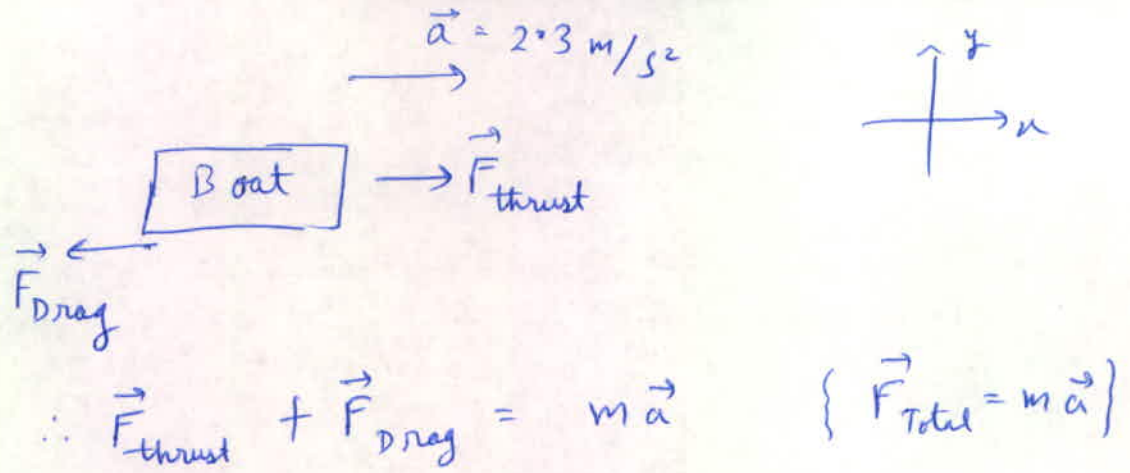 a⃗ = 2·3 m/s²
y
x
Boat
F⃗thrust
F⃗Drag
∴ F⃗thrust + F⃗Drag = m a⃗ { F⃗Total = m a⃗ }